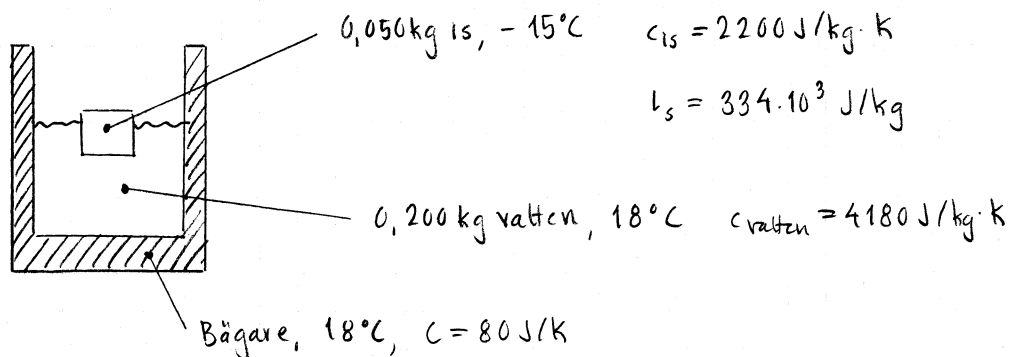 0,050 kg is, - 15°C c_is = 2200 J/kg·K
l_s = 334·10³ J/kg
0,200 kg vatten, 18°C c_vatten = 4180 J/kg·K
Bägare, 18°C, C = 80 J/K